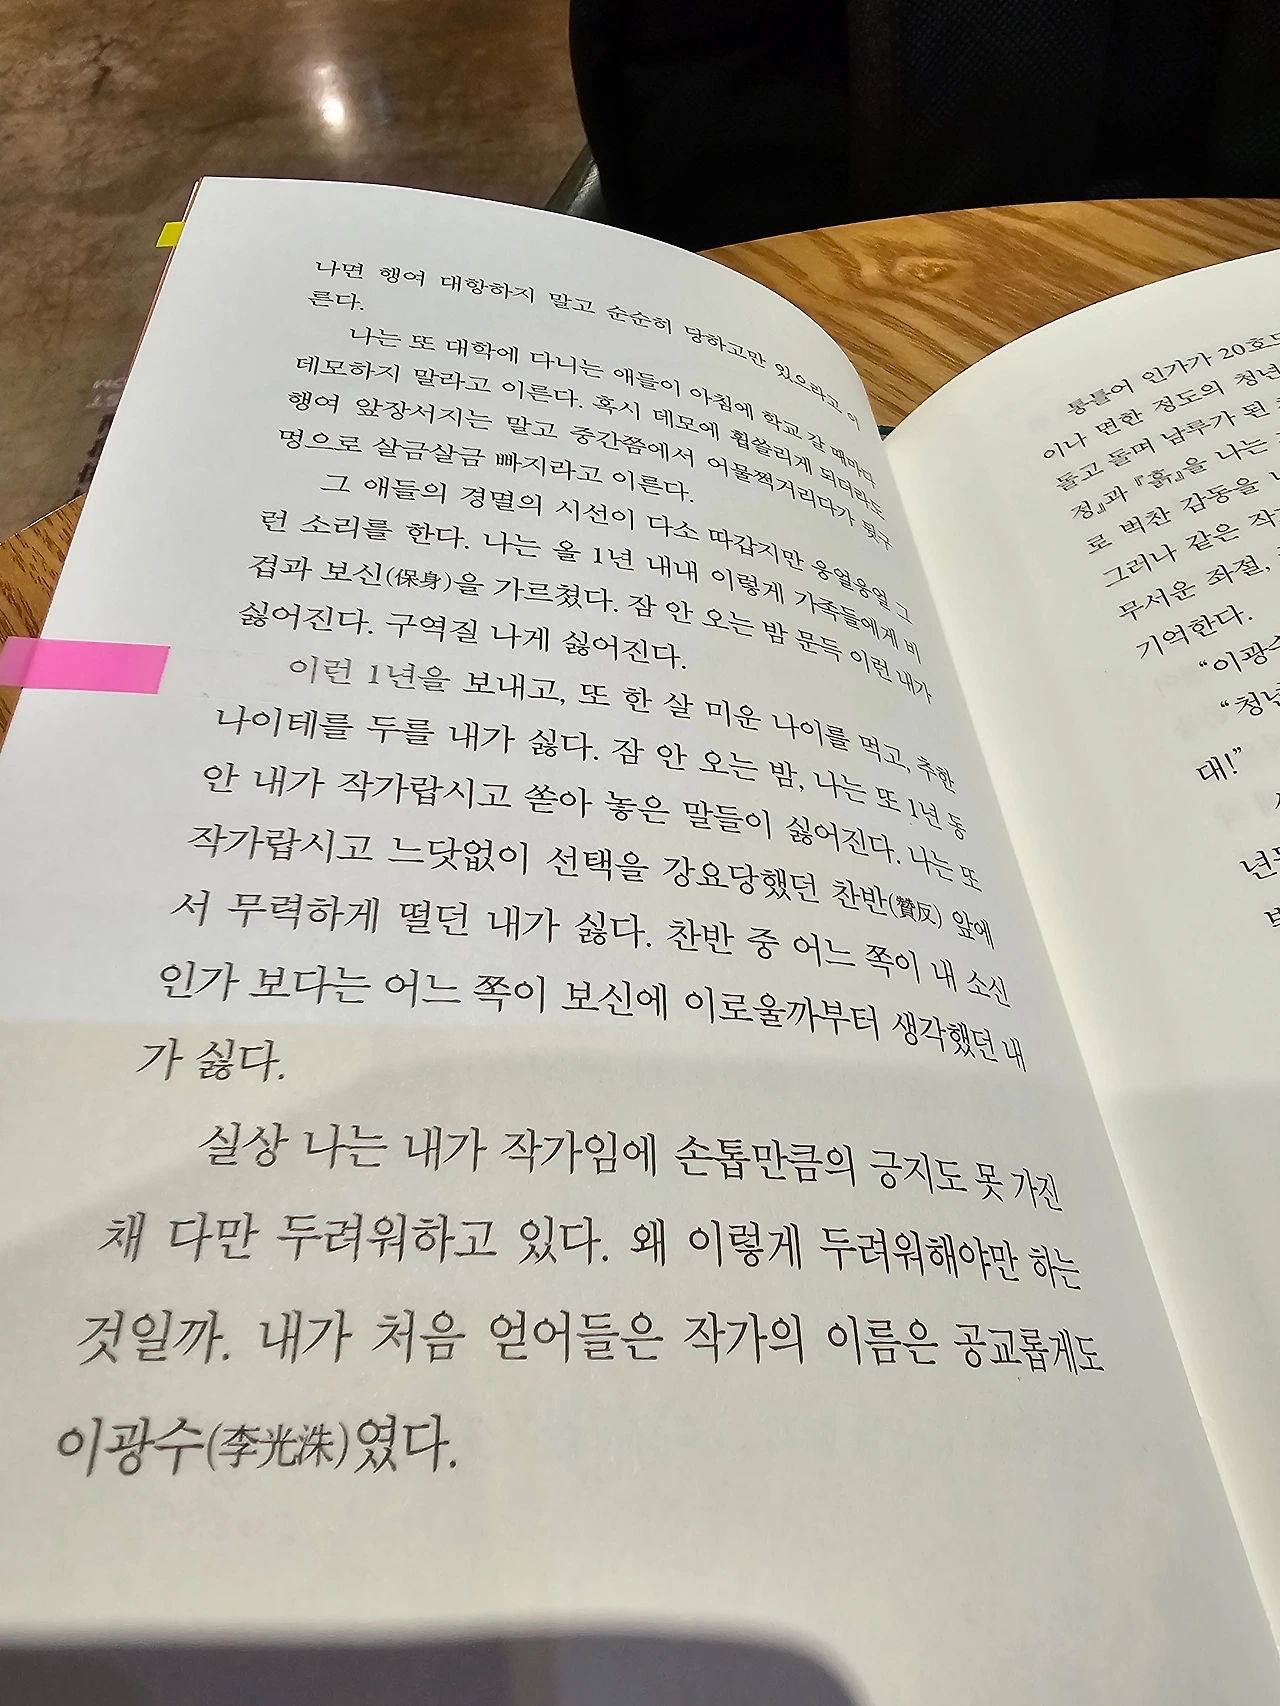 나면 행여 대항하지 말고 순순히 당하고만 있으라고 이
른다.
나는 또 대학에 다니는 애들이 아침에 학교 갈 때마다
데모하지 말라고 이른다. 혹시 데모에 휩쓸리게 되더라도
행여 앞장서지는 말고 중간쯤에서 어물쩍거리다가 뒷구
멍으로 살금살금 빠지라고 이른다.
그 애들의 경멸의 시선이 다소 따갑지만 웅얼웅얼 그
런 소리를 한다. 나는 올 1년 내내 이렇게 가족들에게 비
겁과 보신(保身)을 가르쳤다. 잠 안 오는 밤 문득 이런 내가
싫어진다. 구역질 나게 싫어진다.
이런 1년을 보내고, 또 한 살 미운 나이를 먹고, 추한
나이테를 두를 내가 싫다. 잠 안 오는 밤, 나는 또 1년 동
안 내가 작가랍시고 쏟아 놓은 말들이 싫어진다. 나는 또
작가랍시고 느닷없이 선택을 강요당했던 찬반(贊反) 앞에
서 무력하게 떨던 내가 싫다. 찬반 중 어느 쪽이 내 소신
인가 보다는 어느 쪽이 보신에 이로울까부터 생각했던 내
가 싫다.
실상 나는 내가 작가임에 손톱만큼의 긍지도 못 가진
채 다만 두려워하고 있다. 왜 이렇게 두려워해야만 하는
것일까. 내가 처음 얻어들은 작가의 이름은 공교롭게도
이광수(李光洙)였다.
통틀어 인가가 20호도
이나 면한 정도의 청년
돌고 돌며 남루가 된
정』과 『흙』을 나는
로 벅찬 감동을
그러나 같은
무서운 좌절,
기억한다.
“이광수
“청년
대!”